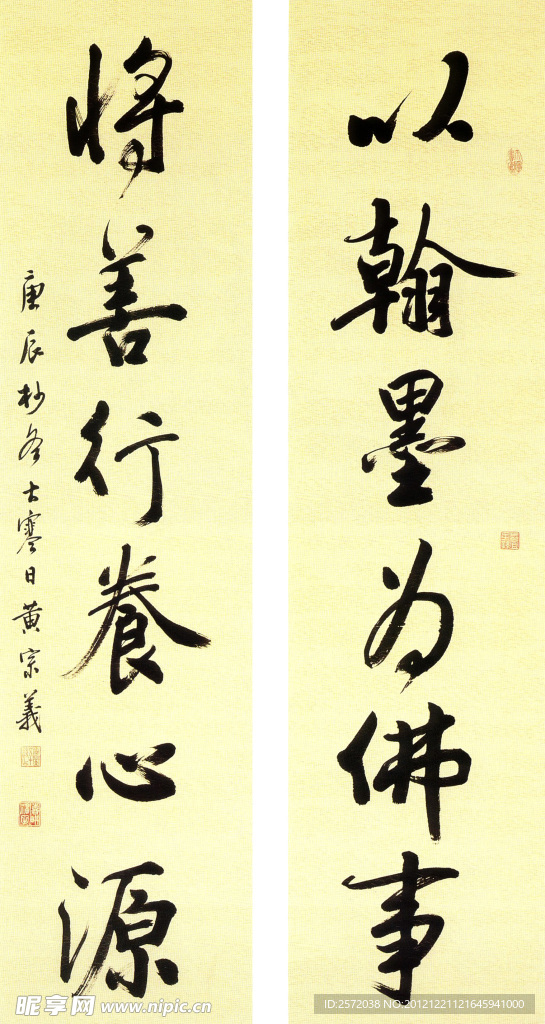 以翰墨為佛事
將善行養心源
庚辰杪冬大寒日黄宗義
昵享网 www.nipic.cn
ID:2572038 NO:20121221121645941000